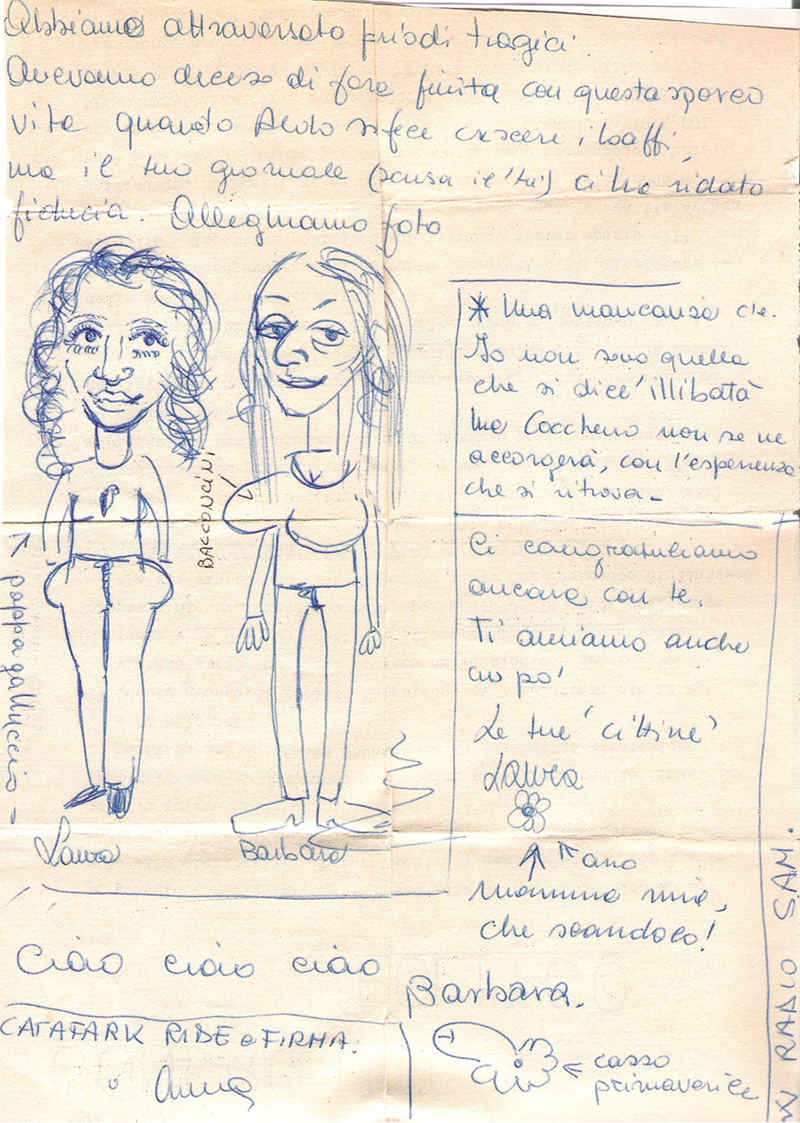 Abbiamo attraversato priodi tragici.
Avevamo deciso di fare finita con questa sporca
vita quando Aldo si fece crescere i baffi,
ma il tuo giornale (scusa il 'tu') ci ha ridato
fiducia. Alleghiamo foto
BACCONCINI
← pappagalluccio -
Laura
Barbara
* Una mancanza c'è.
Io non sono quella
che si dice 'illibata'
Ma Coccheno non se ne
accorgerà, con l'esperienza
che si ritrova -
Ci congratuliamo
ancora con te.
Ti amiamo anche
un po'
Le tue 'cittine'
Laura
ano
mamma mia,
che scandalo!
Barbara.
casso
primaverile
Ciao ciao ciao
CATAFARK RIDE e FIRMA.
Anna
W RADIO SAM.